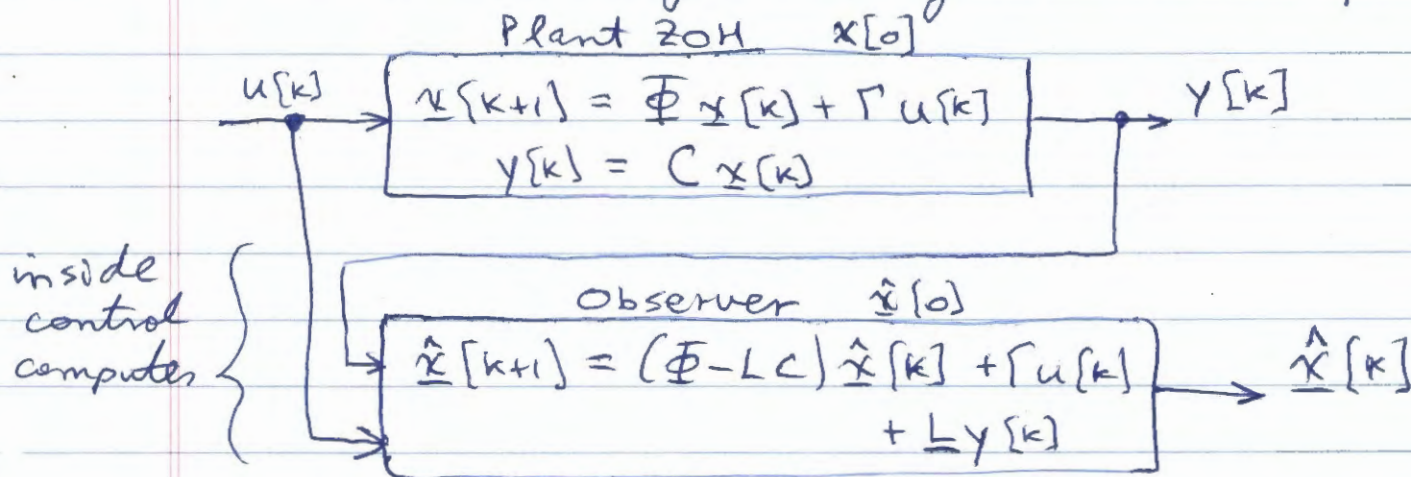 Plant ZOH x[0]
u[k]
x[k+1] = Φ x[k] + Γ u[k]
y[k] = C x[k]
y[k]
inside
control
computer
Observer x̂[0]
x̂[k+1] = (Φ-LC) x̂[k] + Γu[k]
+ L y[k]
x̂[k]